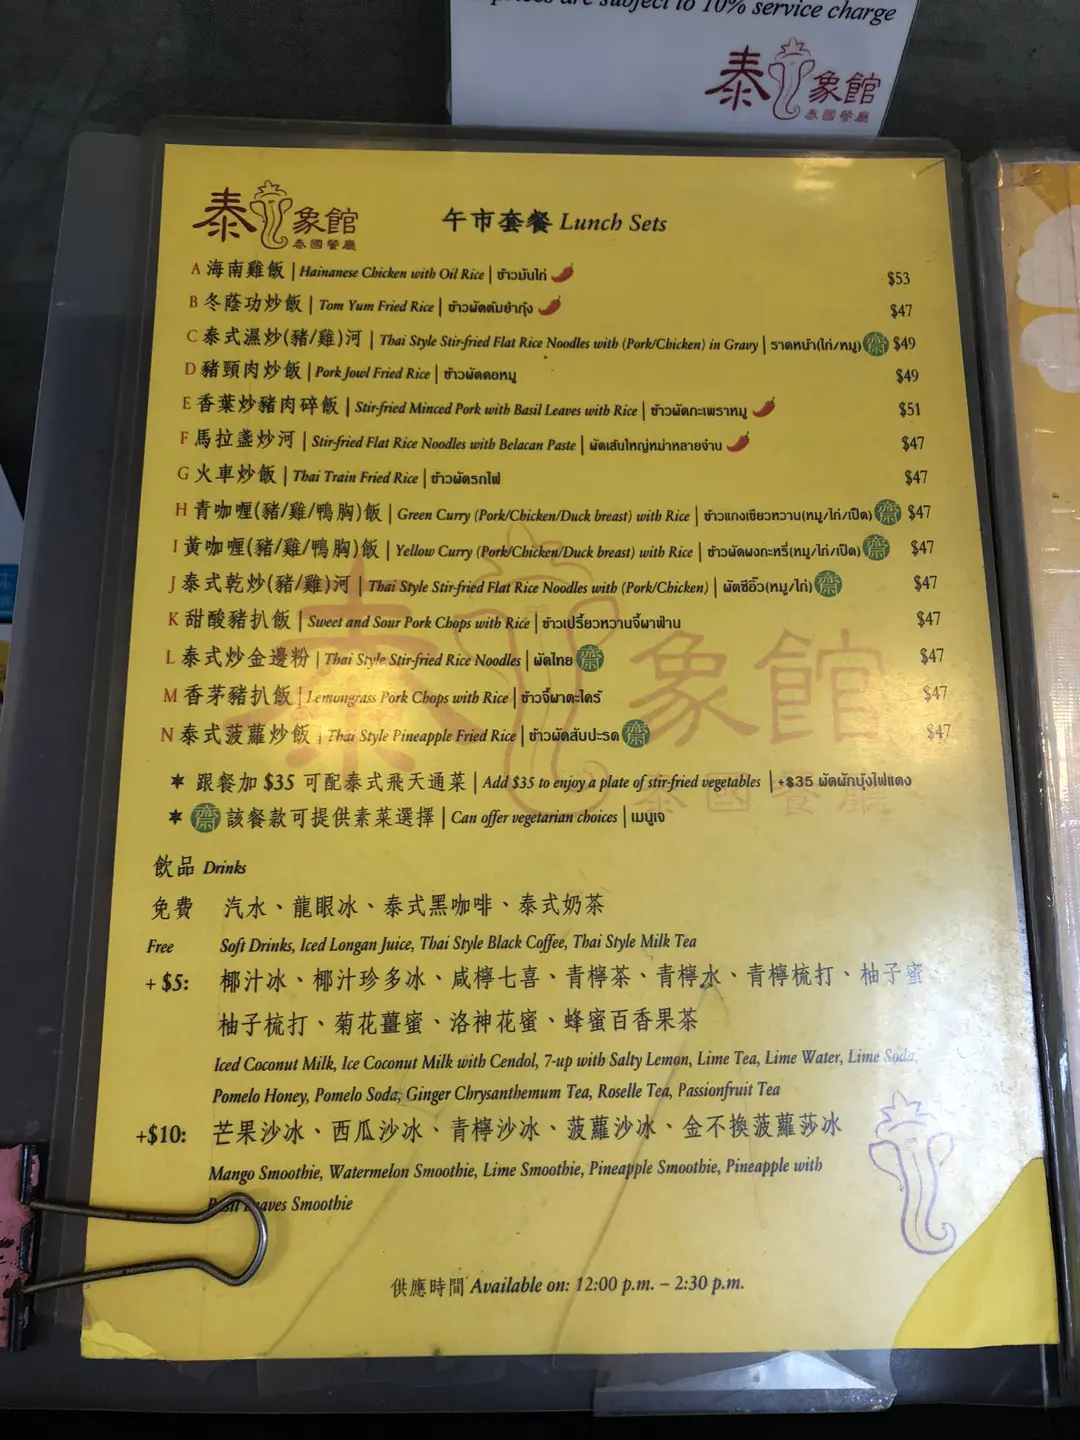 prices are subject to 10% service charge
泰 象館
泰國餐廳
泰 象館
泰國餐廳
午市套餐 Lunch Sets
A 海南雞飯 | Hainanese Chicken with Oil Rice | ข้าวมันไก่ $53
B 冬蔭功炒飯 | Tom Yum Fried Rice | ข้าวผัดต้มยำกุ้ง $47
C 泰式濕炒(豬/雞)河 | Thai Style Stir-fried Flat Rice Noodles with (Pork/Chicken) in Gravy | ราดหน้า(ไก่/หมู) 齋 $49
D 豬頸肉炒飯 | Pork Jowl Fried Rice | ข้าวผัดคอหมู $49
E 香葉炒豬肉碎飯 | Stir-fried Minced Pork with Basil Leaves with Rice | ข้าวผัดกะเพราหมู $51
F 馬拉盞炒河 | Stir-fried Flat Rice Noodles with Belacan Paste | ผัดเส้นใหญ่หม่าหลายจ่าน $47
G 火車炒飯 | Thai Train Fried Rice | ข้าวผัดรถไฟ $47
H 青咖喱(豬/雞/鴨胸)飯 | Green Curry (Pork/Chicken/Duck breast) with Rice | ข้าวแกงเขียวหวาน(หมู/ไก่/เป็ด) 齋 $47
I 黃咖喱(豬/雞/鴨胸)飯 | Yellow Curry (Pork/Chicken/Duck breast) with Rice | ข้าวผัดผงกะหรี่(หมู/ไก่/เป็ด) 齋 $47
J 泰式乾炒(豬/雞)河 | Thai Style Stir-fried Flat Rice Noodles with (Pork/Chicken) | ผัดซีอิ๊ว(หมู/ไก่) 齋 $47
K 甜酸豬扒飯 | Sweet and Sour Pork Chops with Rice | ข้าวเปรี้ยวหวานจี้พาฟ่าน $47
L 泰式炒金邊粉 | Thai Style Stir-fried Rice Noodles | ผัดไทย 齋 $47
M 香茅豬扒飯 | Lemongrass Pork Chops with Rice | ข้าวจี้พาตะไคร้ $47
N 泰式菠蘿炒飯 | Thai Style Pineapple Fried Rice | ข้าวผัดสับปะรด 齋 $47
泰 象館
泰國餐廳
✶ 跟餐加 $35 可配泰式飛天通菜 | Add $35 to enjoy a plate of stir-fried vegetables | +$35 ผัดผักบุ้งไฟแดง
✶ 齋 該餐款可提供素菜選擇 | Can offer vegetarian choices | เมนูเจ
飲品 Drinks
免費 汽水、龍眼冰、泰式黑咖啡、泰式奶茶
Free Soft Drinks, Iced Longan Juice, Thai Style Black Coffee, Thai Style Milk Tea
+ $5: 椰汁冰、椰汁珍多冰、咸檸七喜、青檸茶、青檸水、青檸梳打、柚子蜜
柚子梳打、菊花薑蜜、洛神花蜜、蜂蜜百香果茶
Iced Coconut Milk, Ice Coconut Milk with Cendol, 7-up with Salty Lemon, Lime Tea, Lime Water, Lime Soda,
Pomelo Honey, Pomelo Soda, Ginger Chrysanthemum Tea, Roselle Tea, Passionfruit Tea
+$10: 芒果沙冰、西瓜沙冰、青檸沙冰、菠蘿沙冰、金不換菠蘿莎冰
Mango Smoothie, Watermelon Smoothie, Lime Smoothie, Pineapple Smoothie, Pineapple with
Basil Leaves Smoothie
供應時間 Available on: 12:00 p.m. – 2:30 p.m.